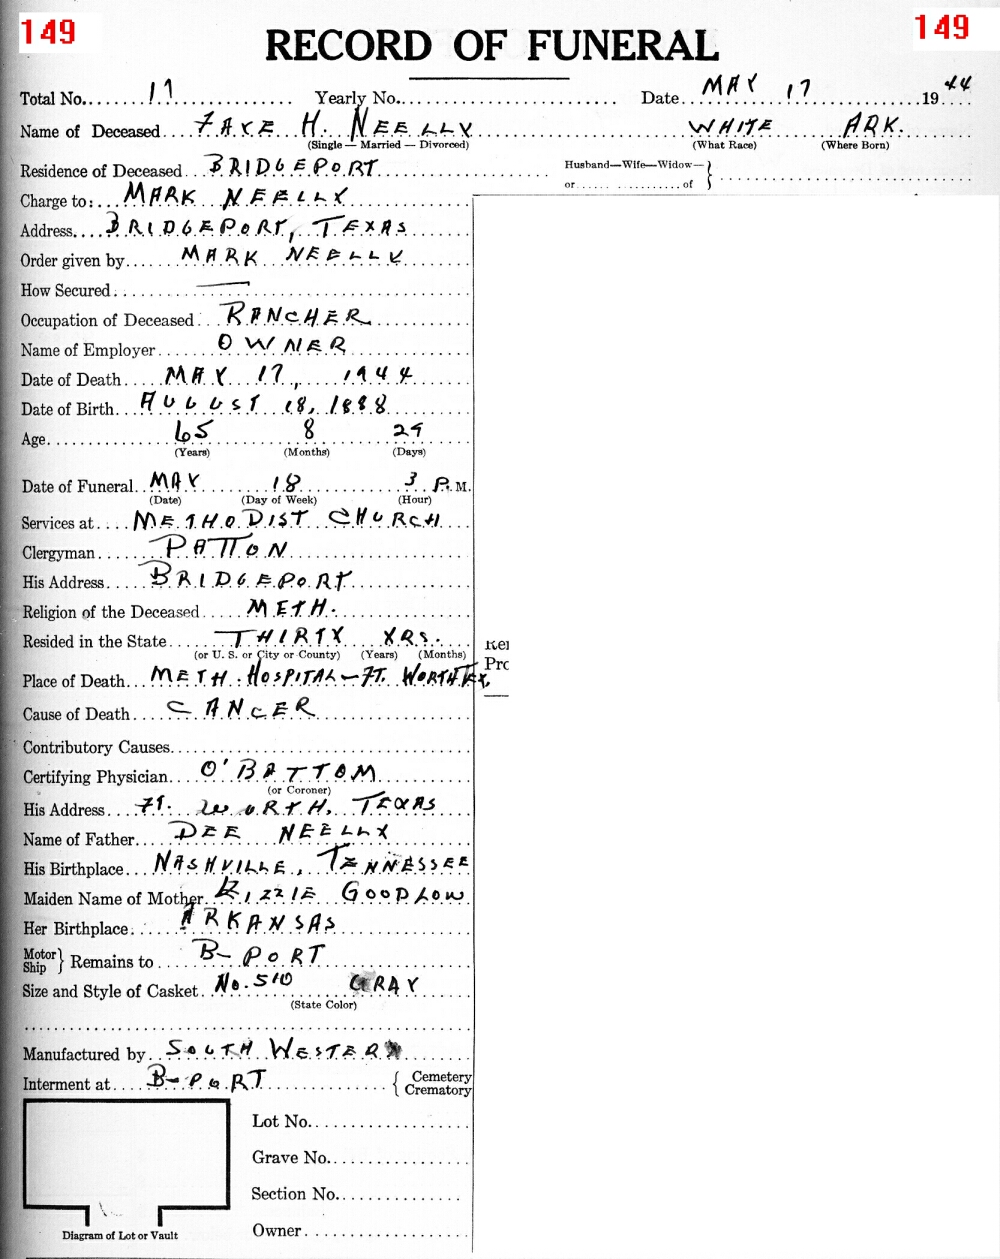 149 149
RECORD OF FUNERAL
Total No. 17 Yearly No. Date MAY 17 1944
Name of Deceased FAYE H. NEELLY WHITE ARK.
(Single — Married — Divorced) (What Race) (Where Born)
Residence of Deceased BRIDGEPORT Husband—Wife—Widow—
or of
Charge to: MARK NEELLY
Address BRIDGEPORT, TEXAS
Order given by MARK NEELLY
How Secured
Occupation of Deceased RANCHER
Name of Employer OWNER
Date of Death MAY 17, 1944
Date of Birth AUGUST 18, 1888
Age 65 8 29
(Years) (Months) (Days)
Date of Funeral MAY 18 3 P.M.
(Date) (Day of Week) (Hour)
Services at METHODIST CHURCH
Clergyman PATTON
His Address BRIDGEPORT
Religion of the Deceased METH.
Resided in the State THIRTY YRS.
(or U. S. or City or County) (Years) (Months)
Place of Death METH. HOSPITAL — FT. WORTH TX.
Cause of Death CANCER
Contributory Causes
Certifying Physician O'BATTOM
(or Coroner)
His Address FT. WORTH, TEXAS
Name of Father DEE NEELLY
His Birthplace NASHVILLE, TENNESSEE
Maiden Name of Mother LIZZIE GOODLOW
Her Birthplace ARKANSAS
Motor Ship } Remains to B-PORT
Size and Style of Casket No. 510 GRAY
(State Color)
Manufactured by SOUTH WESTERN
Interment at B-PORT { Cemetery Crematory
Lot No.
Grave No.
Section No.
Owner
Diagram of Lot or Vault